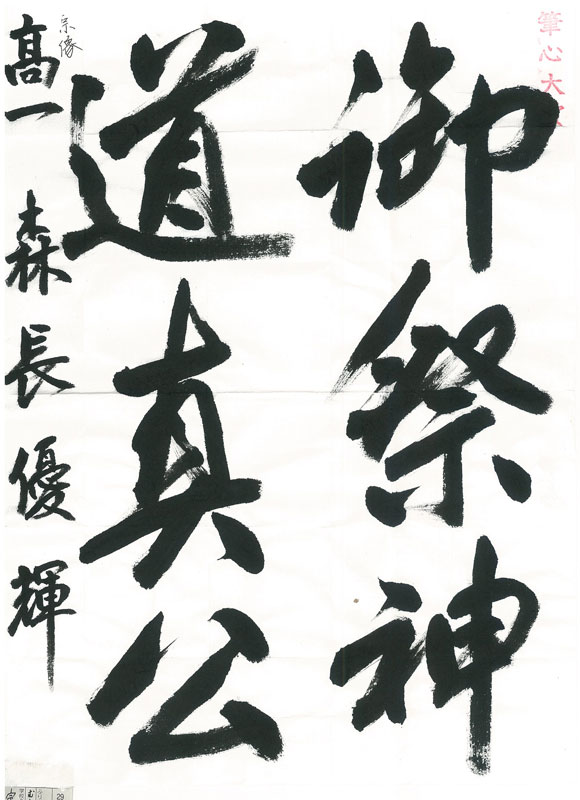 筆心大
御祭神
道真公
宗像
高一 森長優輝
29